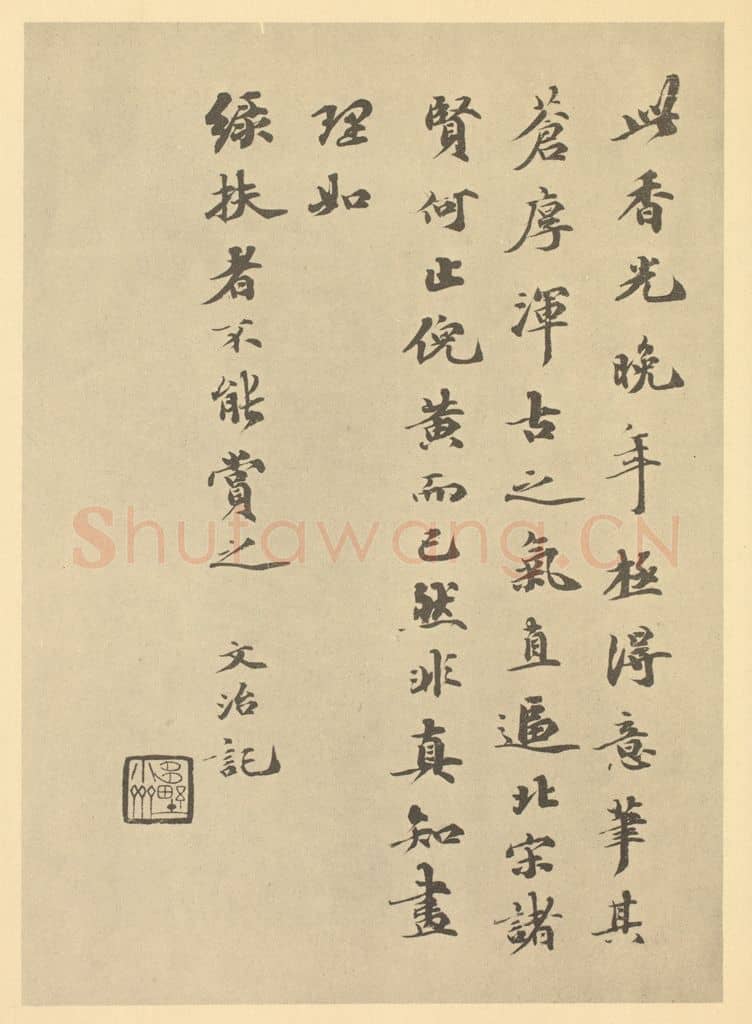 此香光晚年極得意筆其
蒼厚渾古之氣直逼北宋諸
賢何止倪黃而已然非真知畫
理如
綠扶者不能賞之 文治記
Shufawang.CN